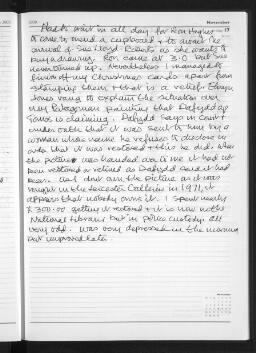 November
17
Had to wait in all day for Ron Hughes
to come to mend a cupboard & to await the
arrival of Sue Lloyd Roberts as she wants to
buy a drawing. Ron came at 3.0 but Sue
never turned up. Nevertheless I managed to
finish off my Christmas cards apart from
stamping them & that is a relief. Emyr
Jones rang to explain the situation over
my Patagonian painting that Dafydd ap
Tomos is claiming. Dafydd says in court
under oath that it was sent to him by a
woman whose name he refuses to disclose in
order that it was restored & this he did. When
the picture was handed over to me it had not
been restored or relined as Dafydd said it had
been. As I don't own the picture as it was
bought in the Leicester Galleries in 1971, it
appears that nobody owns it. I spent nearly
£300.00 getting it restored & it is now in the
National Library but in police custody. All
very odd. Was very depressed in the morning
but improved later.